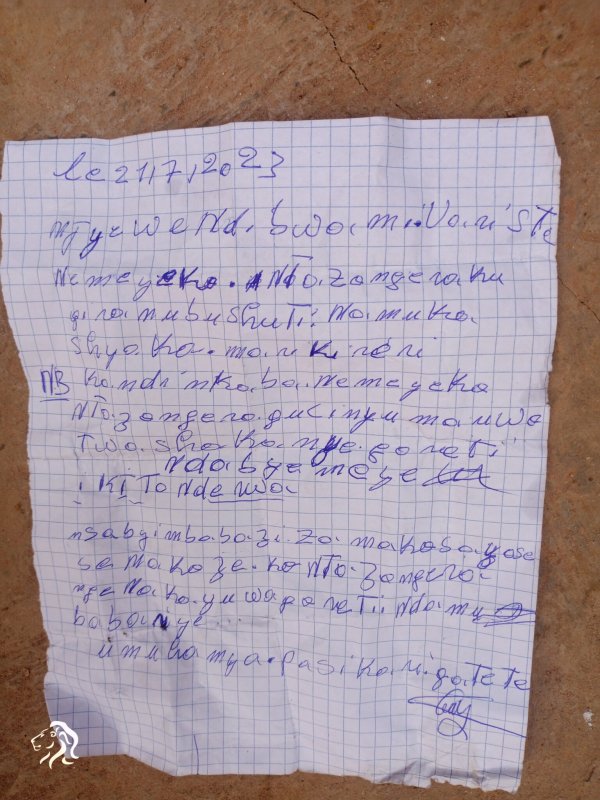 le 21,7,2023
Njyewe Ndibwami Varisite
Nemeyeko Ntazongeraku
girana ubushuti Namuka
Shyaka mari kireri
NB kandi nkaba nemeyeko
Ntazongera gucinyuma uwo
Twashakanye goreti
ndabyemeye
ikitonderwa
nsabyimbabazi za makosa yose
se Nakoze ko Ntazongera
nge Nako uwa goreti Ndamu
babanye...
umuhamya pasikari gatete